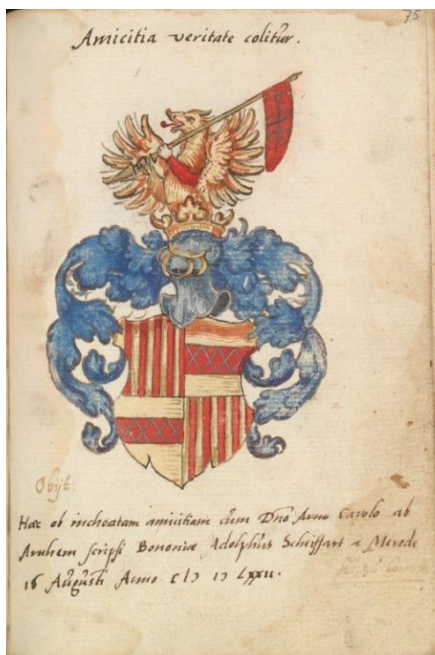 75
Amicitia veritate colitur.
Obijt.
Hac ob inchoatam amicitiam cum Dno Arno Carolo ab
Arnhem scripsi Bononiæ Adolphus Scheiffart a Merode
16 Augusti Anno CIↃ IↃ Lxxii.